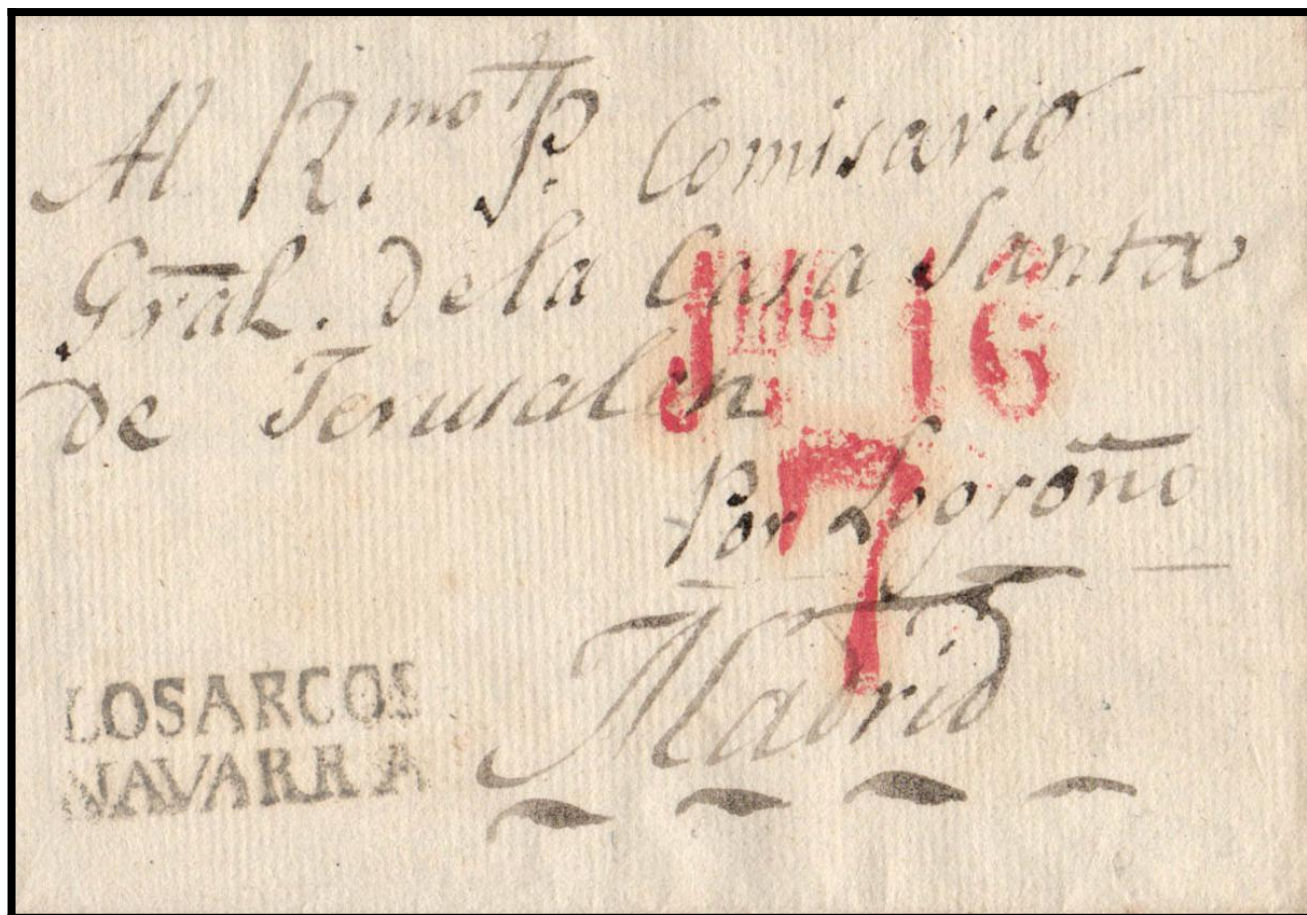 Al R.mo P. Comisario
Gral. de la Casa Santa
de Jerusalen
16
Por Logroño
7
Madrid
LOSARCOS
NAVARRA